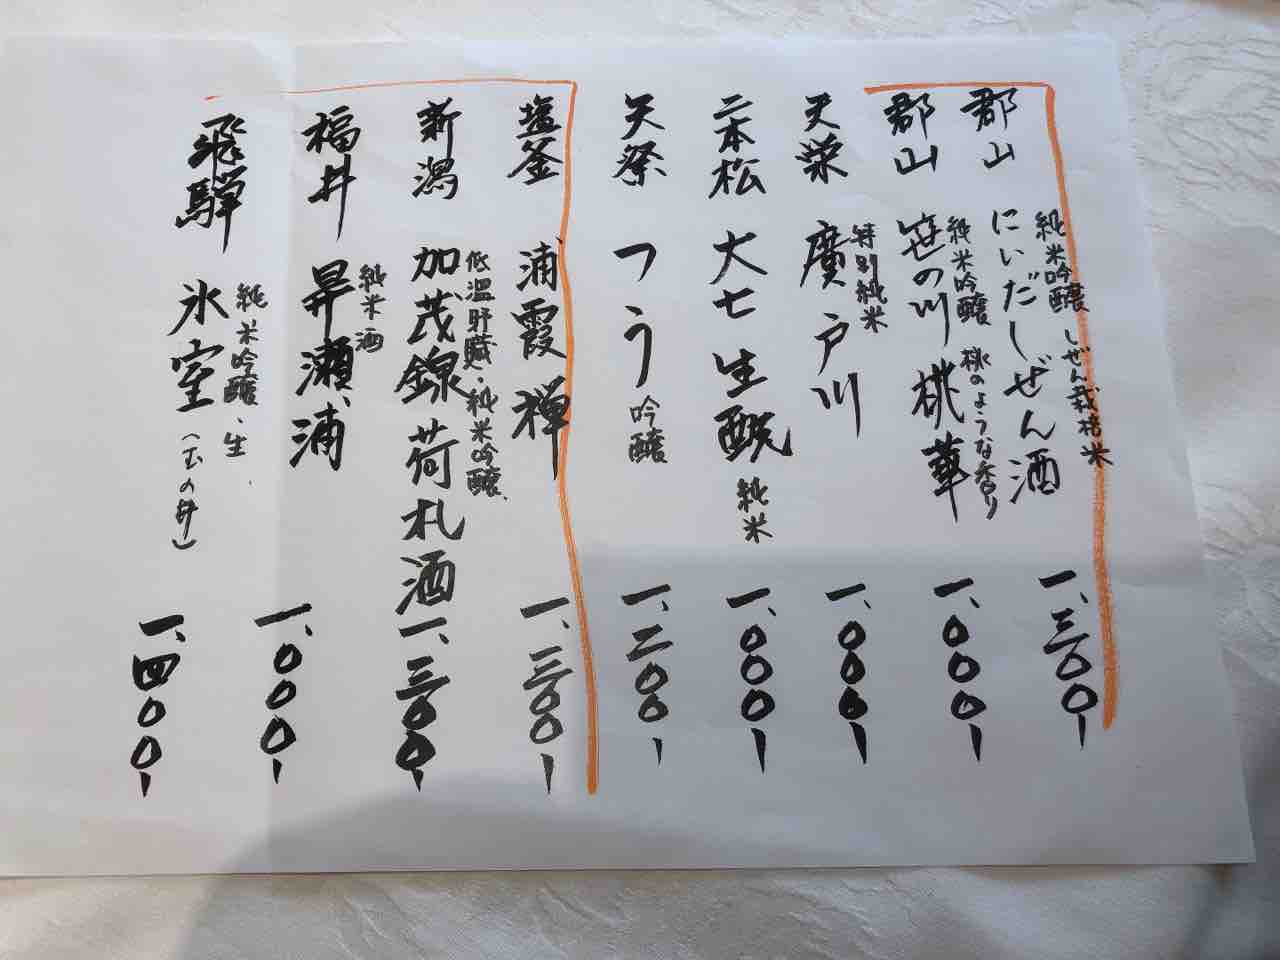 郡山 にいだしぜん酒 純米吟醸 しぜん栽培米 一、三〇〇-
郡山 笹の川 桃華 純米吟醸 桃のような香り 一、〇〇〇-
天栄 廣戸川 特別純米 一、〇〇〇-
二本松 大七生酛 純米 一、〇〇〇-
矢祭 つう 吟醸 一、二〇〇-
塩釜 浦霞 禅 一、三〇〇-
新潟 加茂錦 荷札酒 低温貯蔵・純米吟醸、 一、三〇〇-
福井 早瀬浦 純米酒 一、〇〇〇-
飛騨 氷室 純米吟醸・生 (玉の井) 一、四〇〇-